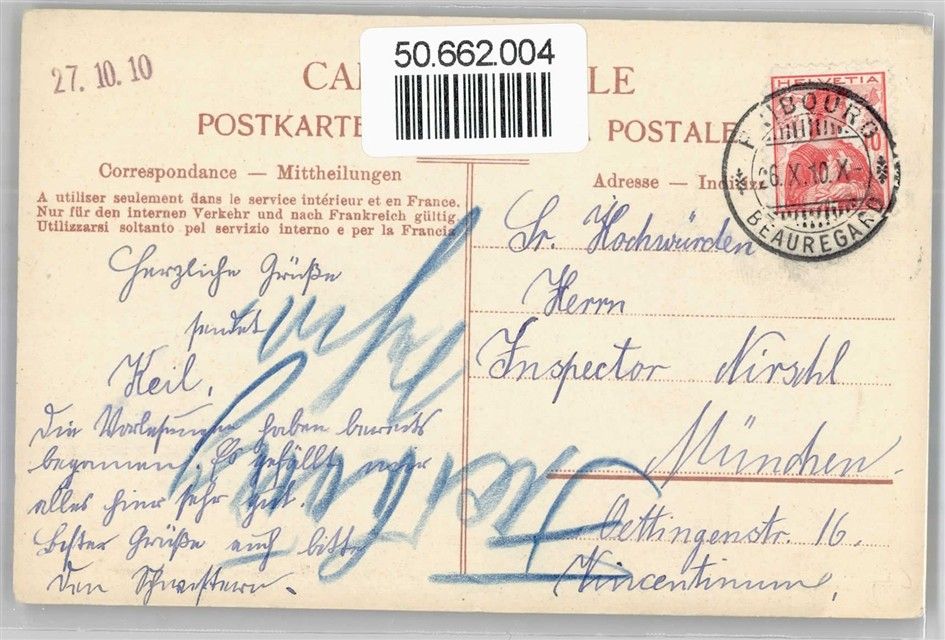 27.10.10
50.662.004
POSTKARTE
POSTALE
Correspondance — Mittheilungen
A utiliser seulement dans le service intérieur et en France.
Nur für den internen Verkehr und nach Frankreich gültig.
Utilizzarsi soltanto pel servizio interno e per la Francia
Adresse —
HELVETIA
10
FRIBOURG
26.X.10.X-
BEAUREGARD
Herzliche Grüße
sendet
Keil.
Die Vorlesungen haben bereits
begonnen. Es gefällt mir
alles hier sehr gut.
Bester Grüße auch bitte
den Schwestern.
Sr. Hochwürden
Herrn
Inspector Nirschl
München.
Oettingenstr. 16.
Vincentinum.